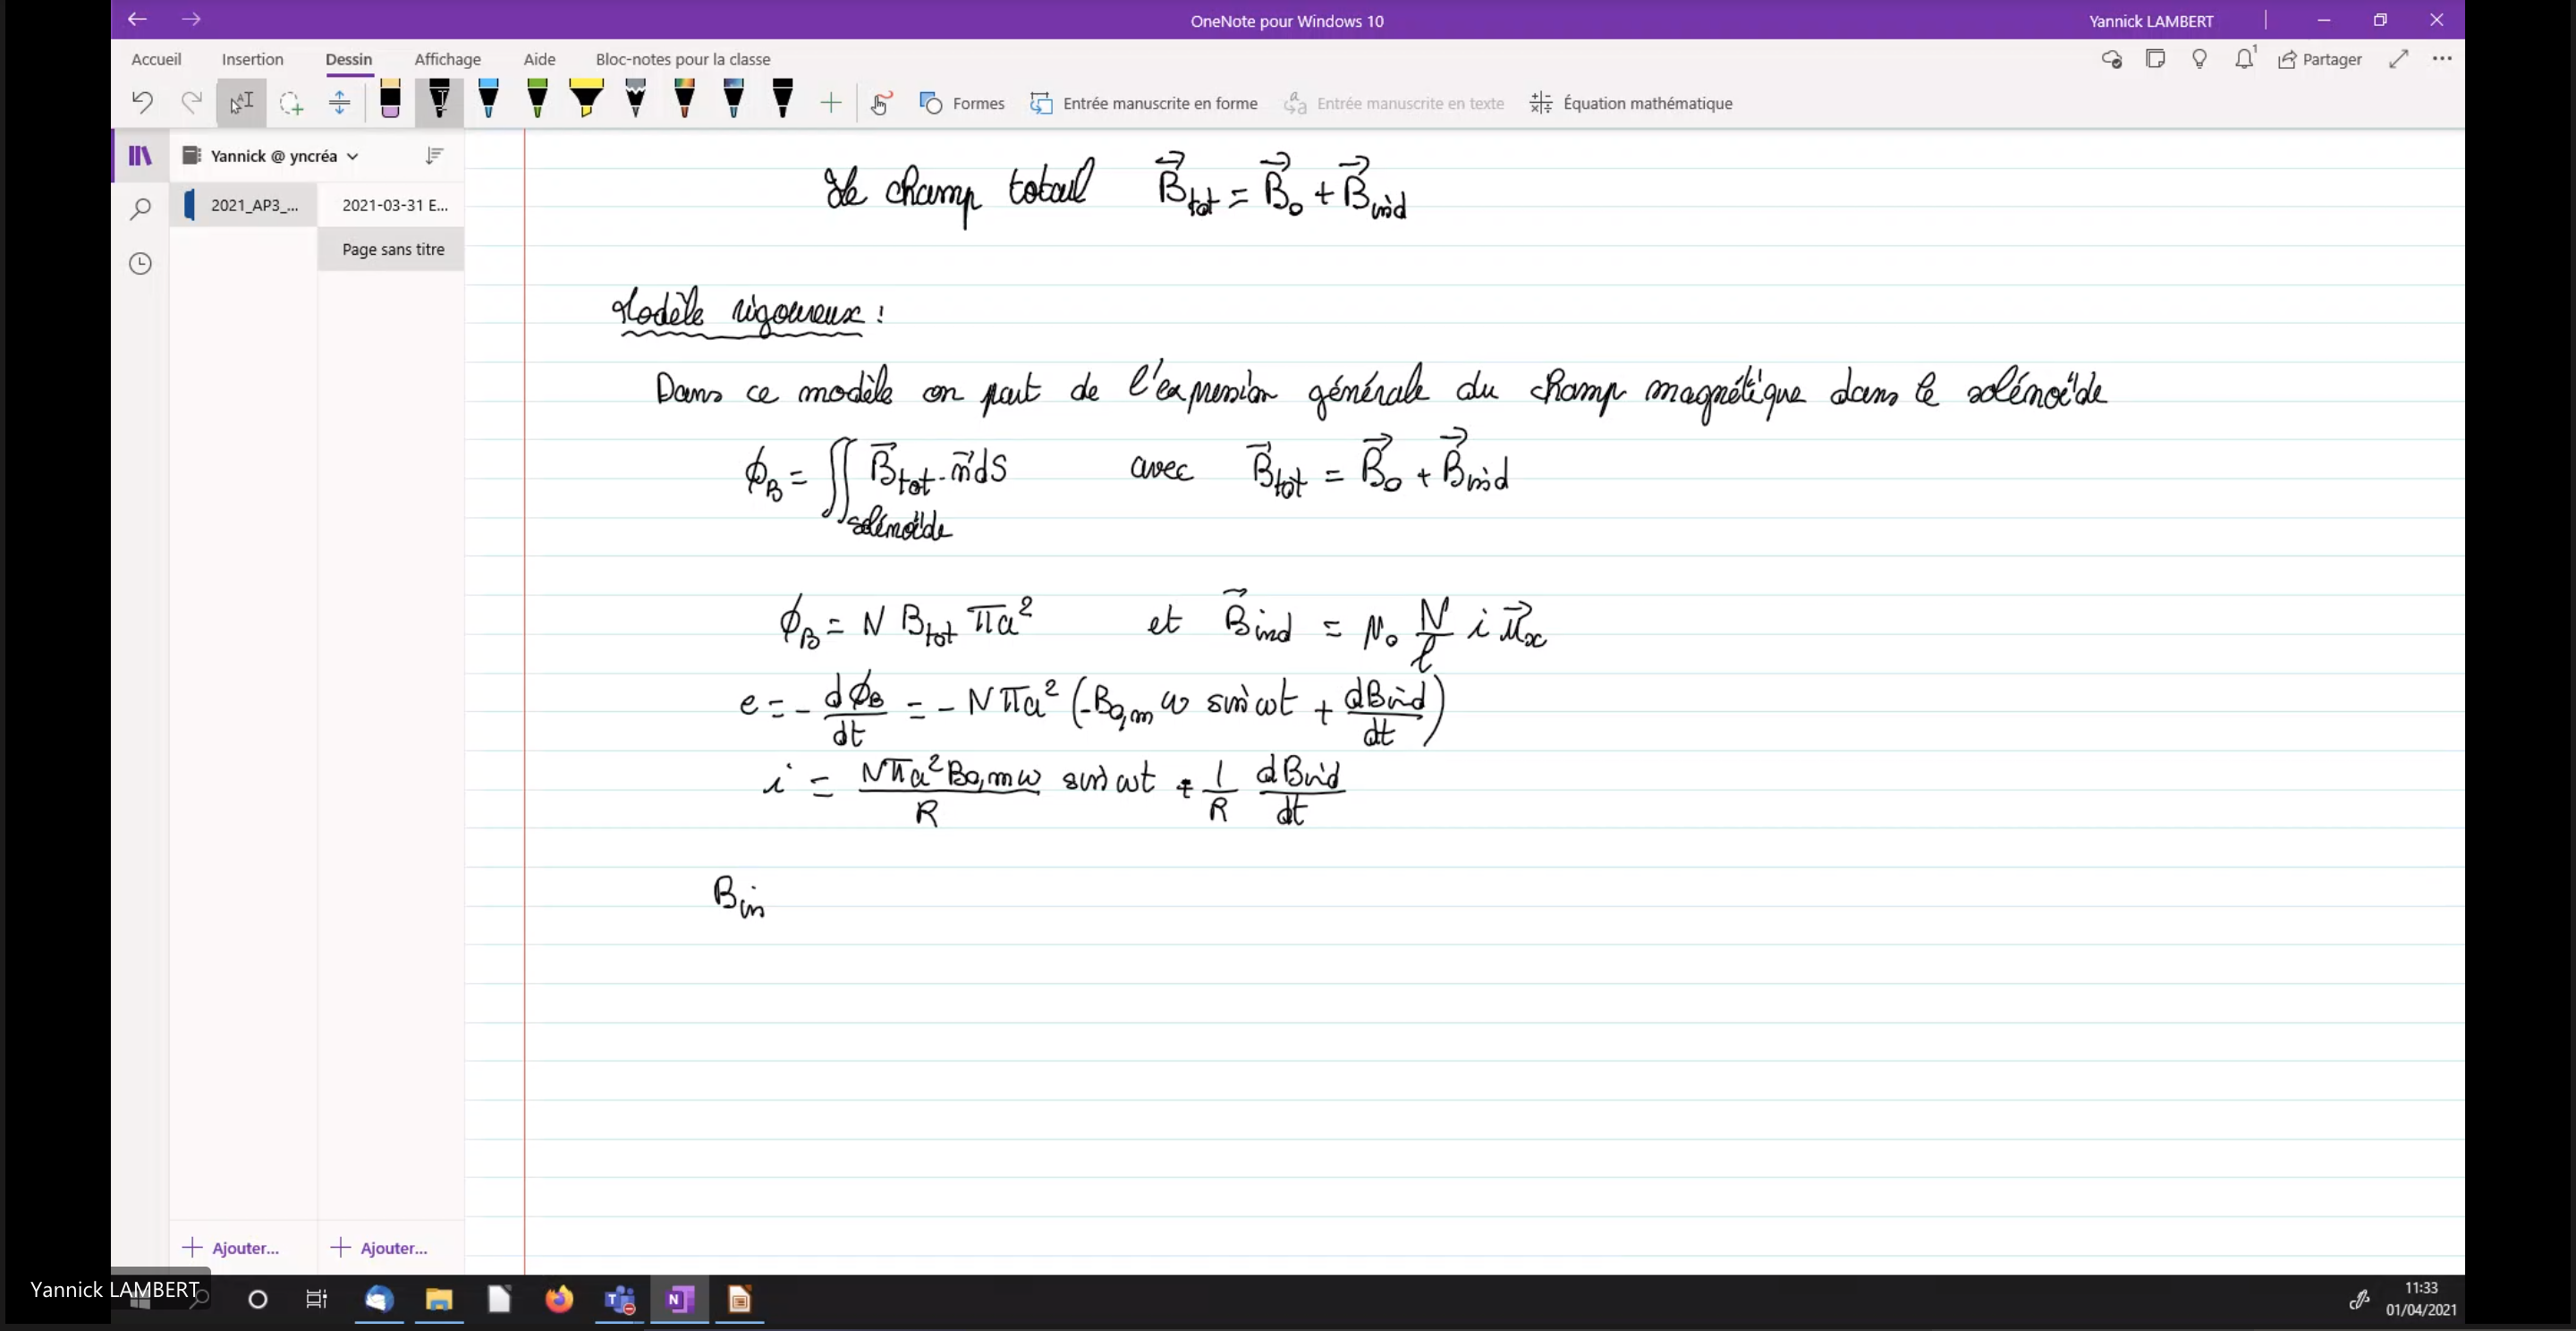 OneNote pour Windows 10
Yannick LAMBERT
Accueil Insertion Dessin Affichage Aide Bloc-notes pour la classe
1 Partager
Formes Entrée manuscrite en forme Entrée manuscrite en texte Équation mathématique
Yannick @ yncréa
2021_AP3_... 2021-03-31 E...
Page sans titre
Le champ total B⃗tot = B⃗o + B⃗ind
Modèle rigoureux :
Dans ce modèle on part de l'expression générale du champ magnétique dans le solénoïde
ϕB = ∬solénoïde B⃗tot · n⃗ dS avec B⃗tot = B⃗o + B⃗ind
ϕB = N Btot πa² et B⃗ind = μo N/ℓ i u⃗x
e = - dϕB/dt = - Nπa² (-Bo,m ω sin ωt + dBind/dt)
i = Nπa²Bo,mω/R sin ωt + 1/R dBind/dt
Bin
Ajouter... Ajouter...
Yannick LAMBERT
11:33
01/04/2021